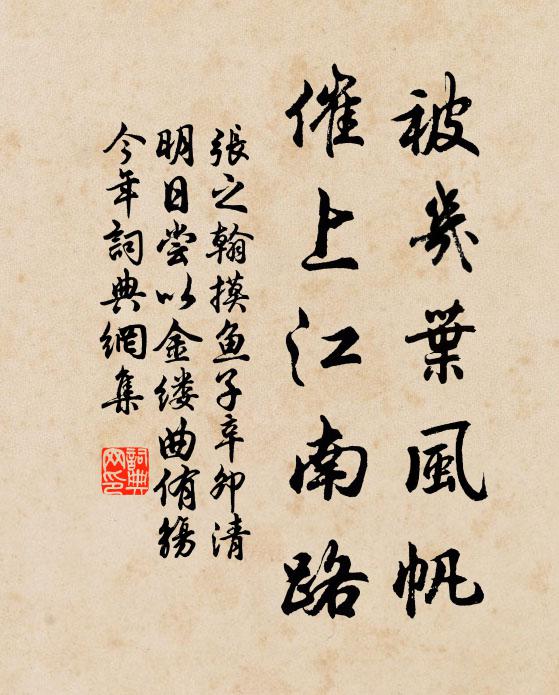 被幾葉風帆
催上江南路
張之翰摸鱼子辛卯清
明日尝以金缕曲侑觞
今年詞典網集
詞典網印